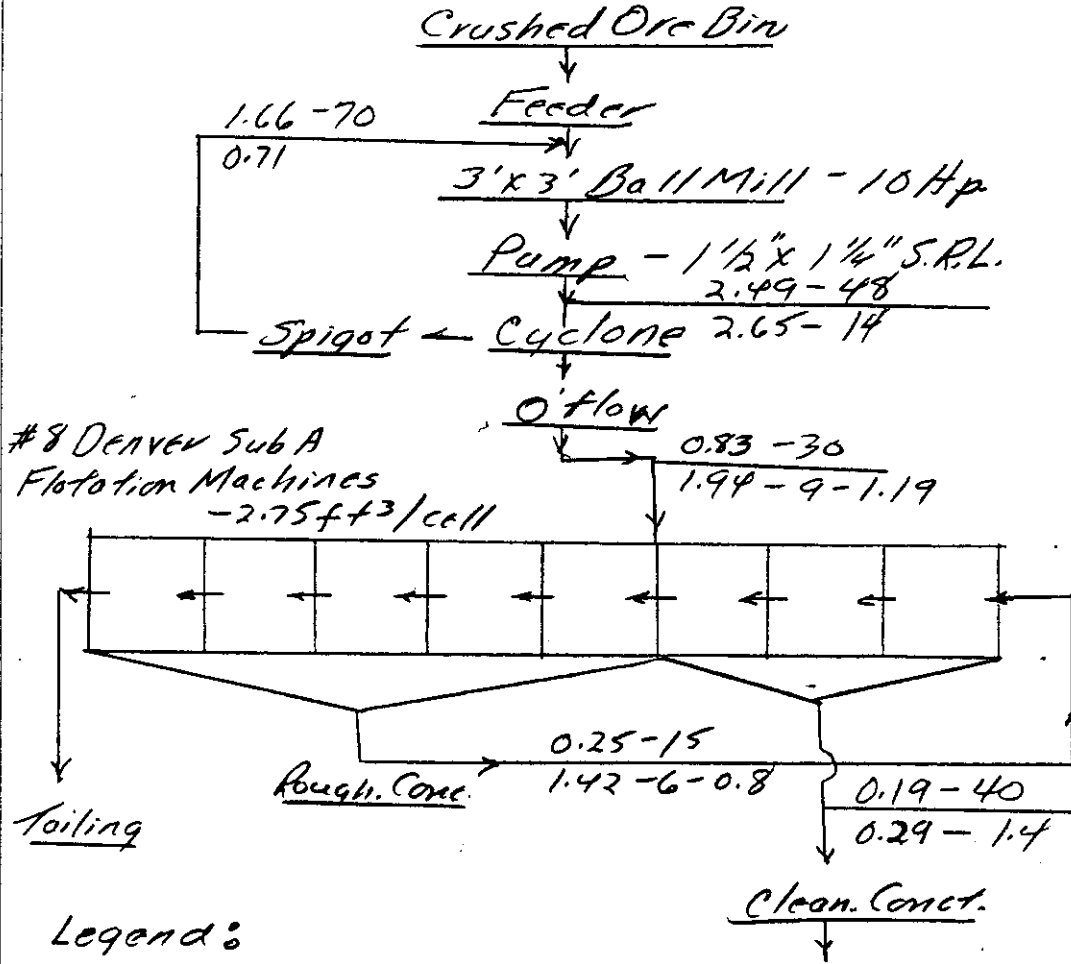 Crushed Ore Bin
Feeder
1.66-70
0.71
3'x3' Ball Mill - 10 Hp.
Pump - 1 1/2" x 1 1/4" S.R.L.
2.49-48
2.65-14
Spigot
Cyclone
O'flow
#8 Denver Sub A
Flotation Machines
-2.75ft³/cell
0.83-30
1.94-9-1.19
0.25-15
1.42-6-0.8
Rough. Conc.
0.19-40
0.29-1.4
Tailing
Clean. Conct.
Legend: